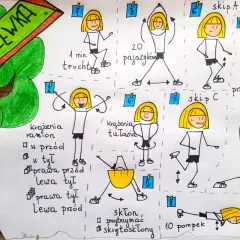 EWKA
1 min
trucht
20
pajacyków
skip A
krążenia
ramion
w przód
w tył
prawa przód
lewa tył
prawa tył
lewa przód
krążenia
tułowia
skip C
skłon
przytrzymać
skrętoskłony
10 pompek